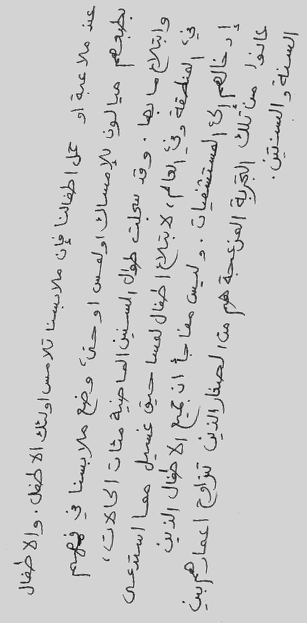 عند ملاعبة او حمل اطفالنا فإن ملابسنا تلامس اولئك الاطفال. والاطفال
بطبعهم ميالون للإمساك او لمس او حتى وضع ملابسنا في فمهم
وابتلاع ما بها. وقد سجلت طوال السنين الماضية مئات الحالات،
في المنطقة وفي العالم، لابتلاع اطفال لمساحيق غسيل مما استدعى
إدخالهم إلى المستشفيات. وليس مفاجأ ان جميع الاطفال الذين
عانوا من تلك التجربة المزعجة هم من الصغار الذين تتراوح اعمارهم بين
السنة والسنتين.